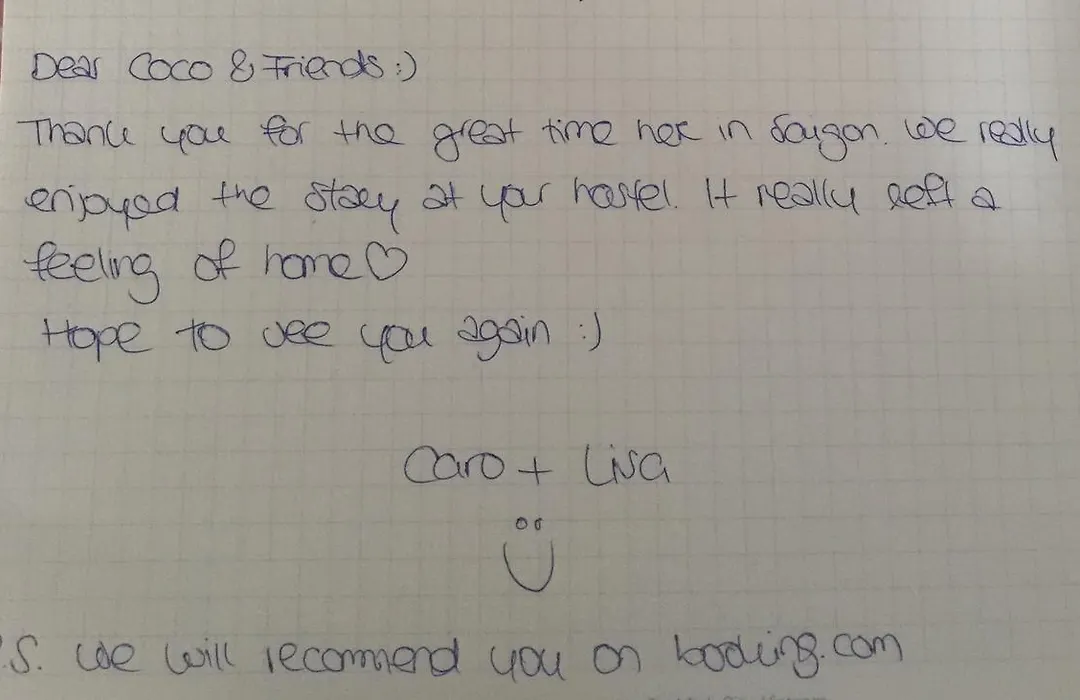 Dear Coco & Friends :)
Thank you for the great time her in Saygon. We really
enjoyed the staey at your hostel. It really left a
feeling of home♡
Hope to see you again :)
Caro + Lisa
P.S. We will recommend you on booking.com